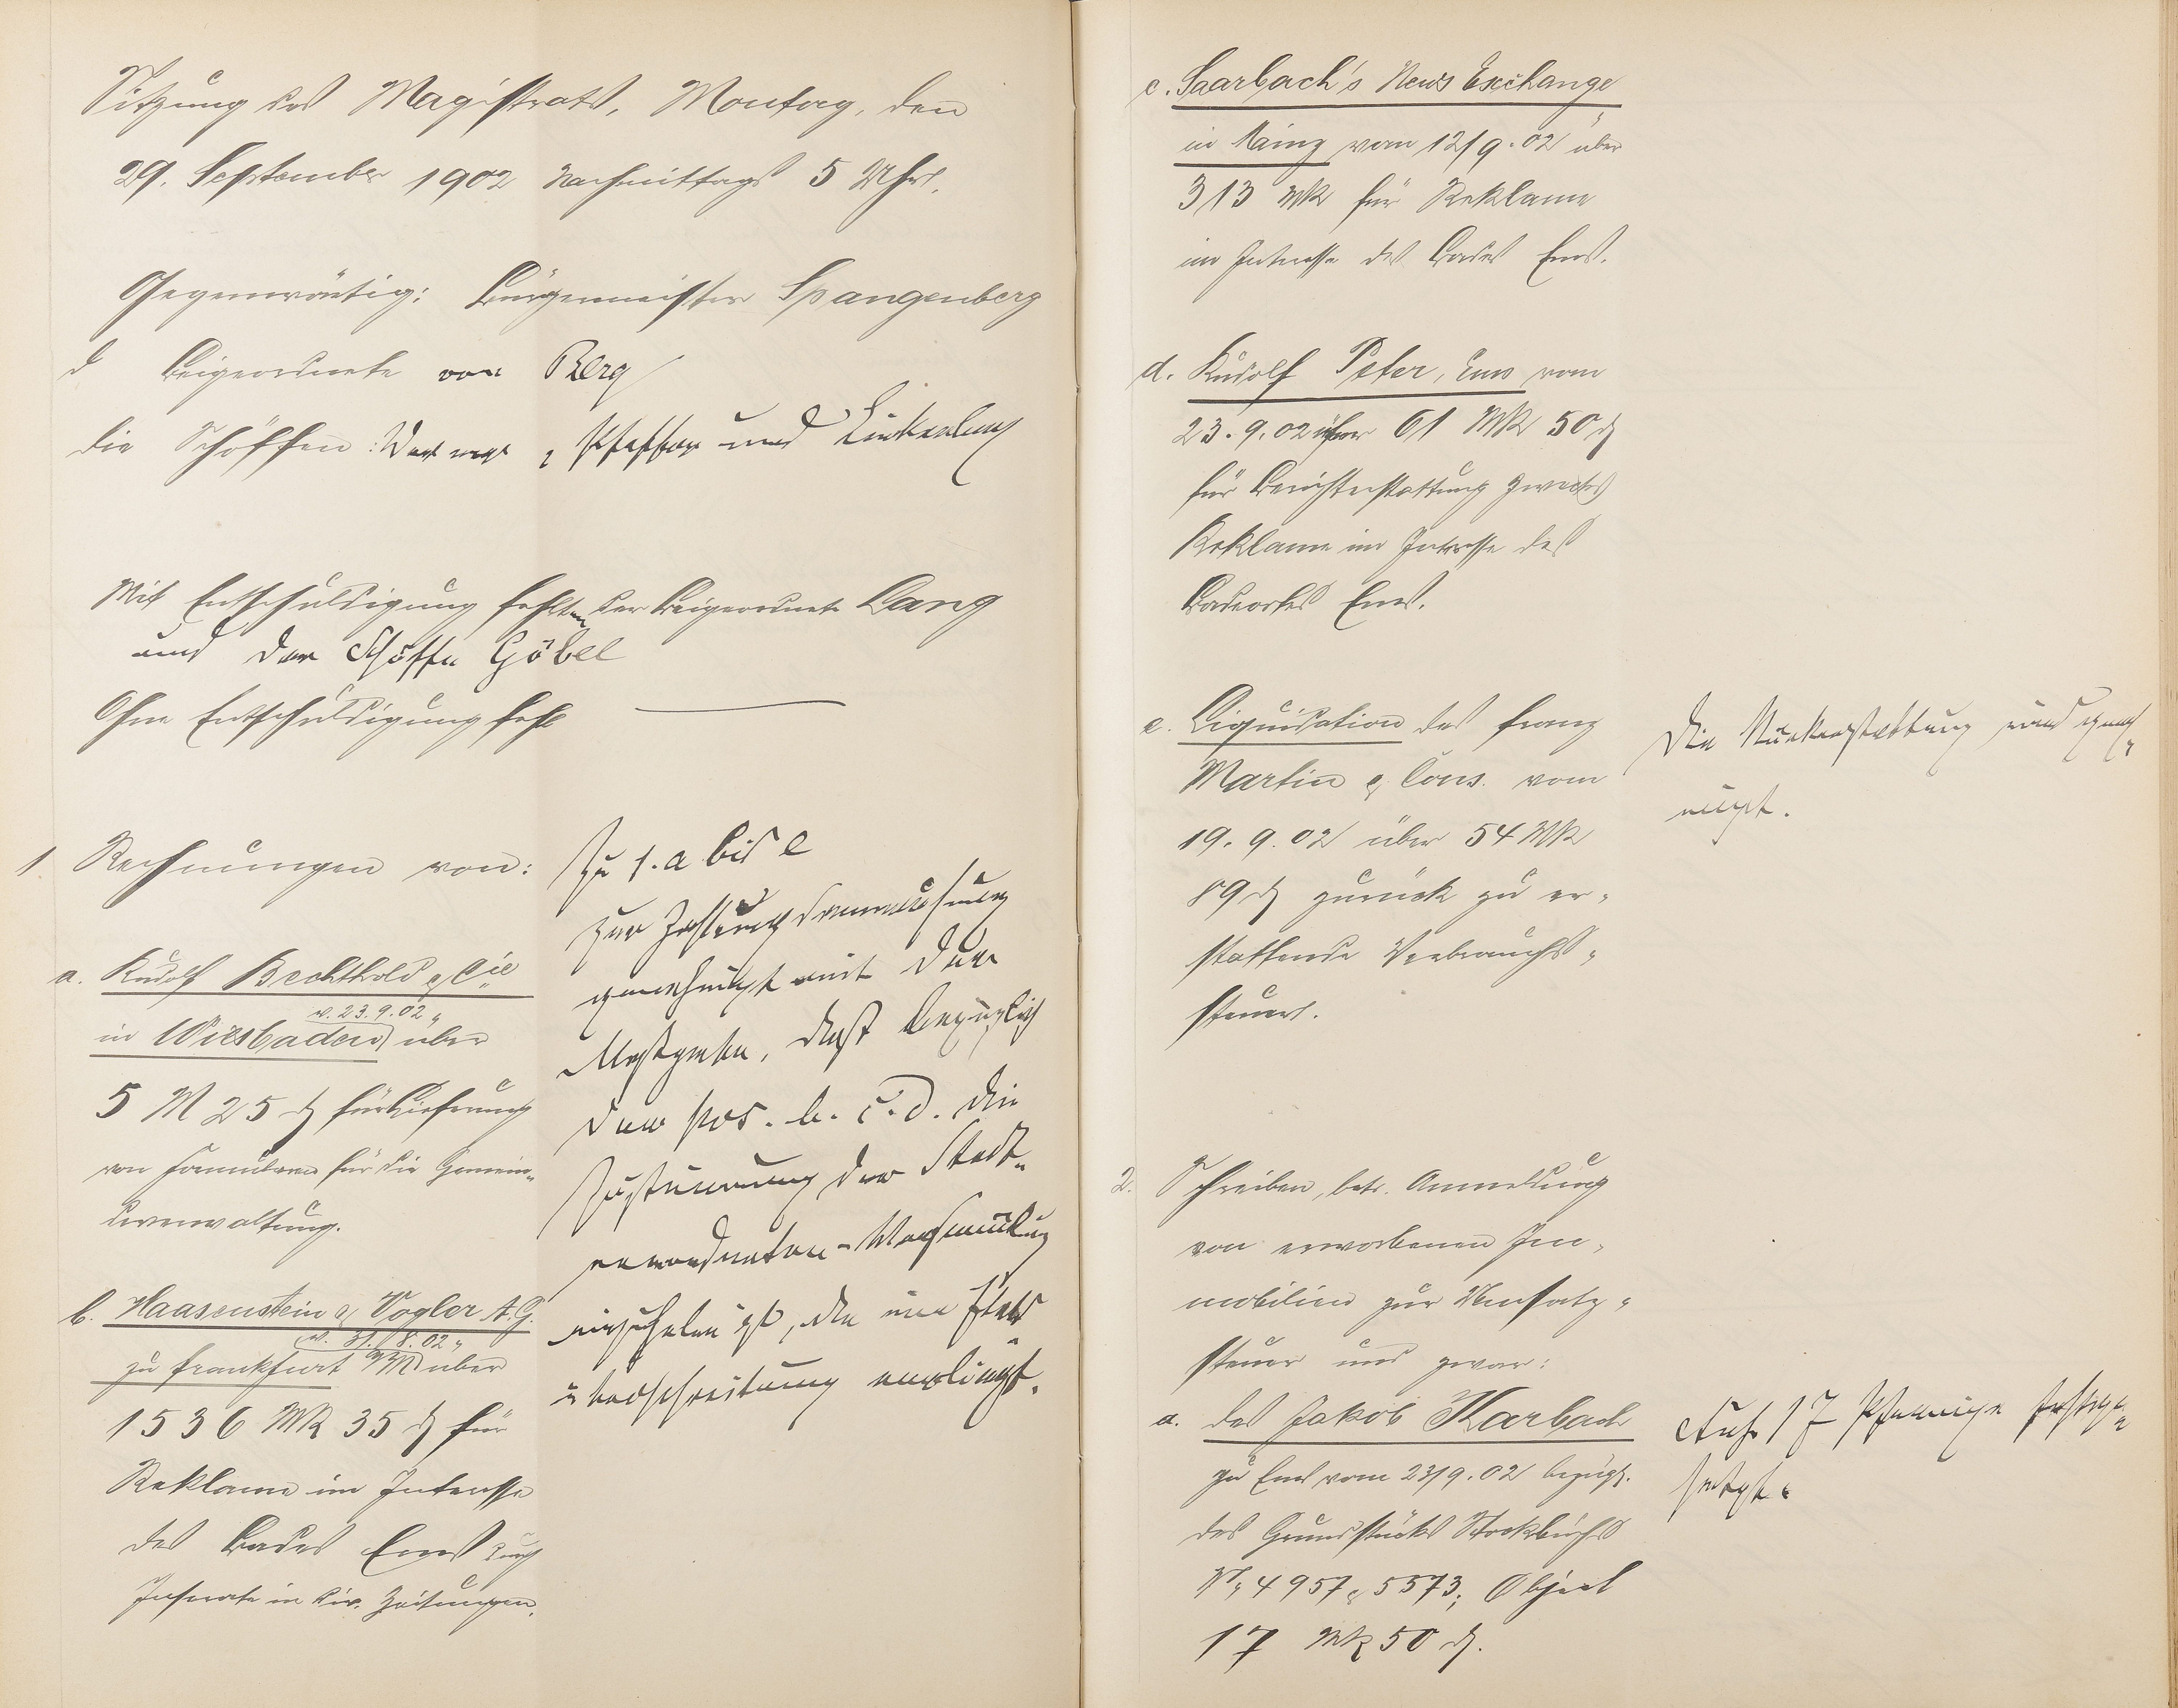 Sitzung des Magistrats, Montag, den
29. September 1902 Nachmittags 5 Uhr.
Gegenwärtig: Bürgermeister Spangenberg
d Beigeordnete von Berg
die Schöffen: und Linkenbach
Mit Entschuldigung fehlten der Beigeordnete Lang
und der Schöffe Göbel
Ohne Entschuldigung fehlt
1. Rechnungen von:
a. Rudolf Bechthold & Cie
v. 23.9.02
in Wiesbaden über
5 M 25 ₰ für Lieferung
von Formularen für die Gemein-
deverwaltung.
b. Haasenstein & Vogler A.G.
v. 31./8.02
zu Frankfurt a/M über
1536 Mk 35 ₰ für
Reklame im Interesse
des Bades Ems durch
Inserate in div. Zeitungen.
Zu 1. a bis e
zur Zahlungsanweisung
genehmigt mit der
Maßgabe, daß bezüglich
der pos. b. c. d. die
Zustimmung der Stadt-
verordneten-Versammlung
einzuholen ist, da eine Etats-
überschreitung vorliegt.
c. Saarbach's News Exchange
in Mainz vom 12/9.02 über
313 Mk für Reklame
im Interesse des Bades Ems.
d. Rudolf Peter, Ems vom
23.9.02 über 61 Mk 50 ₰
für Berichterstattung zwecks
Reklame im Interesse des
Badeortes Ems.
e. Liquidation des Franz
Martin & Cons. vom
19.9.02 über 54 Mk
89 ₰ zurück zu er-
stattende Verbrauchs-
steuer.
Die Rückerstattung wird geneh-
migt.
2. Schreiben, betr. Anmeldung
von erworbenen Im-
mobilien zur Umsatz-
steuer und zwar:
a. des Jakob Karbach
zu Ems vom 23/9.02 bezügl.
des Grundstücks Stockbuchs
No 4957 & 5573; Object
17 Mk 50 ₰.
Auf 17 Pfennige festge-
setzt.